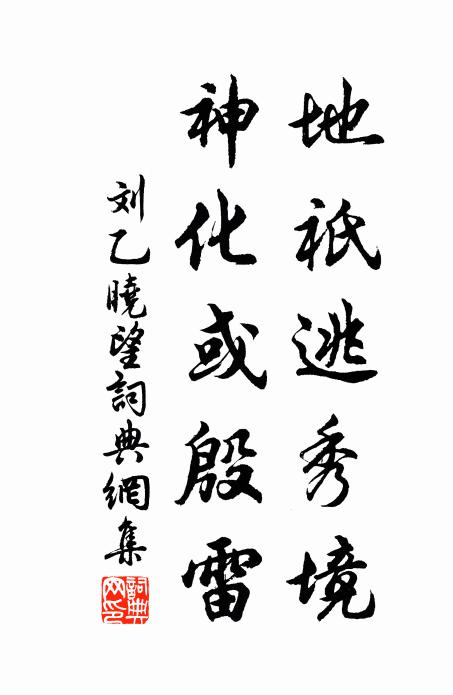 地祇逃秀境
神化或殷雷
刘乙曉望詞典網集
詞典网印